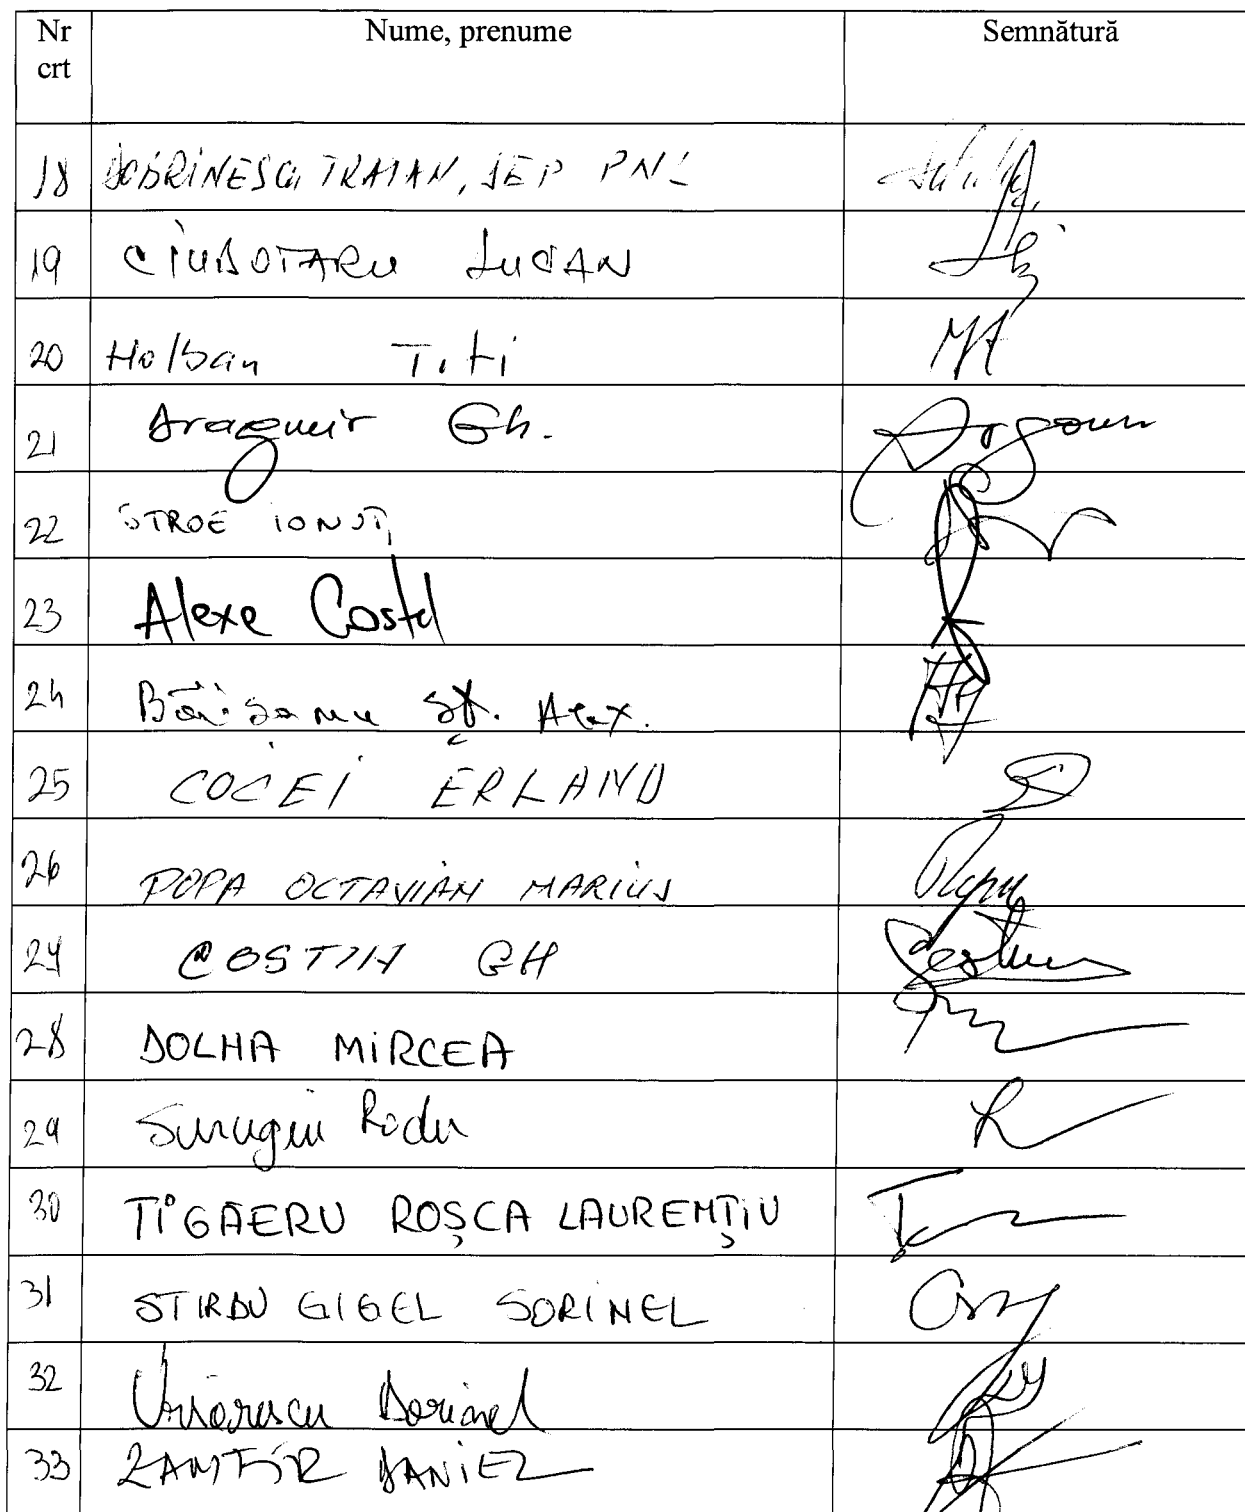 Nr crt Nume, prenume Semnătură
18 DOBRINESCU TRAIAN, DEP PNL
19 CIUBOTARU LUCIAN
20 Holban Titi
21 Dragomir Gh.
22 STROE IONUȚ
23 Alexe Costel
24 Băișanu Șt. Alex.
25 COCEI ERLAND
26 POPA OCTAVIAN MARIUS
27 COSTIN GH
28 DOLHA MIRCEA
29 Surugiu Radu
30 TIGĂERU ROȘCA LAURENȚIU
31 STIRBU GIGEL SORINEL
32 Dorinel
33 ZAMFIR DANIEL